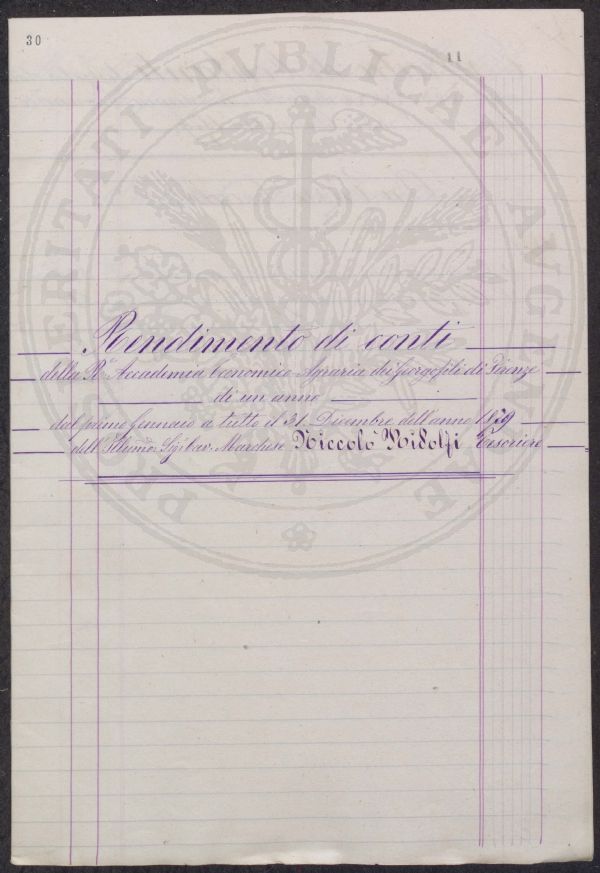 30
11
PROSPERITATI PVBLICAE AVGENDAE
Rendimento di conti
della Ra. Accademia Economico Agraria dei Georgofili di Firenze
di un anno
dal primo Gennaio a tutto il 31 Dicembre dell'anno 1879
dell'Illmo. Sig. Cav. Marchese Niccolò Ridolfi Tesoriere